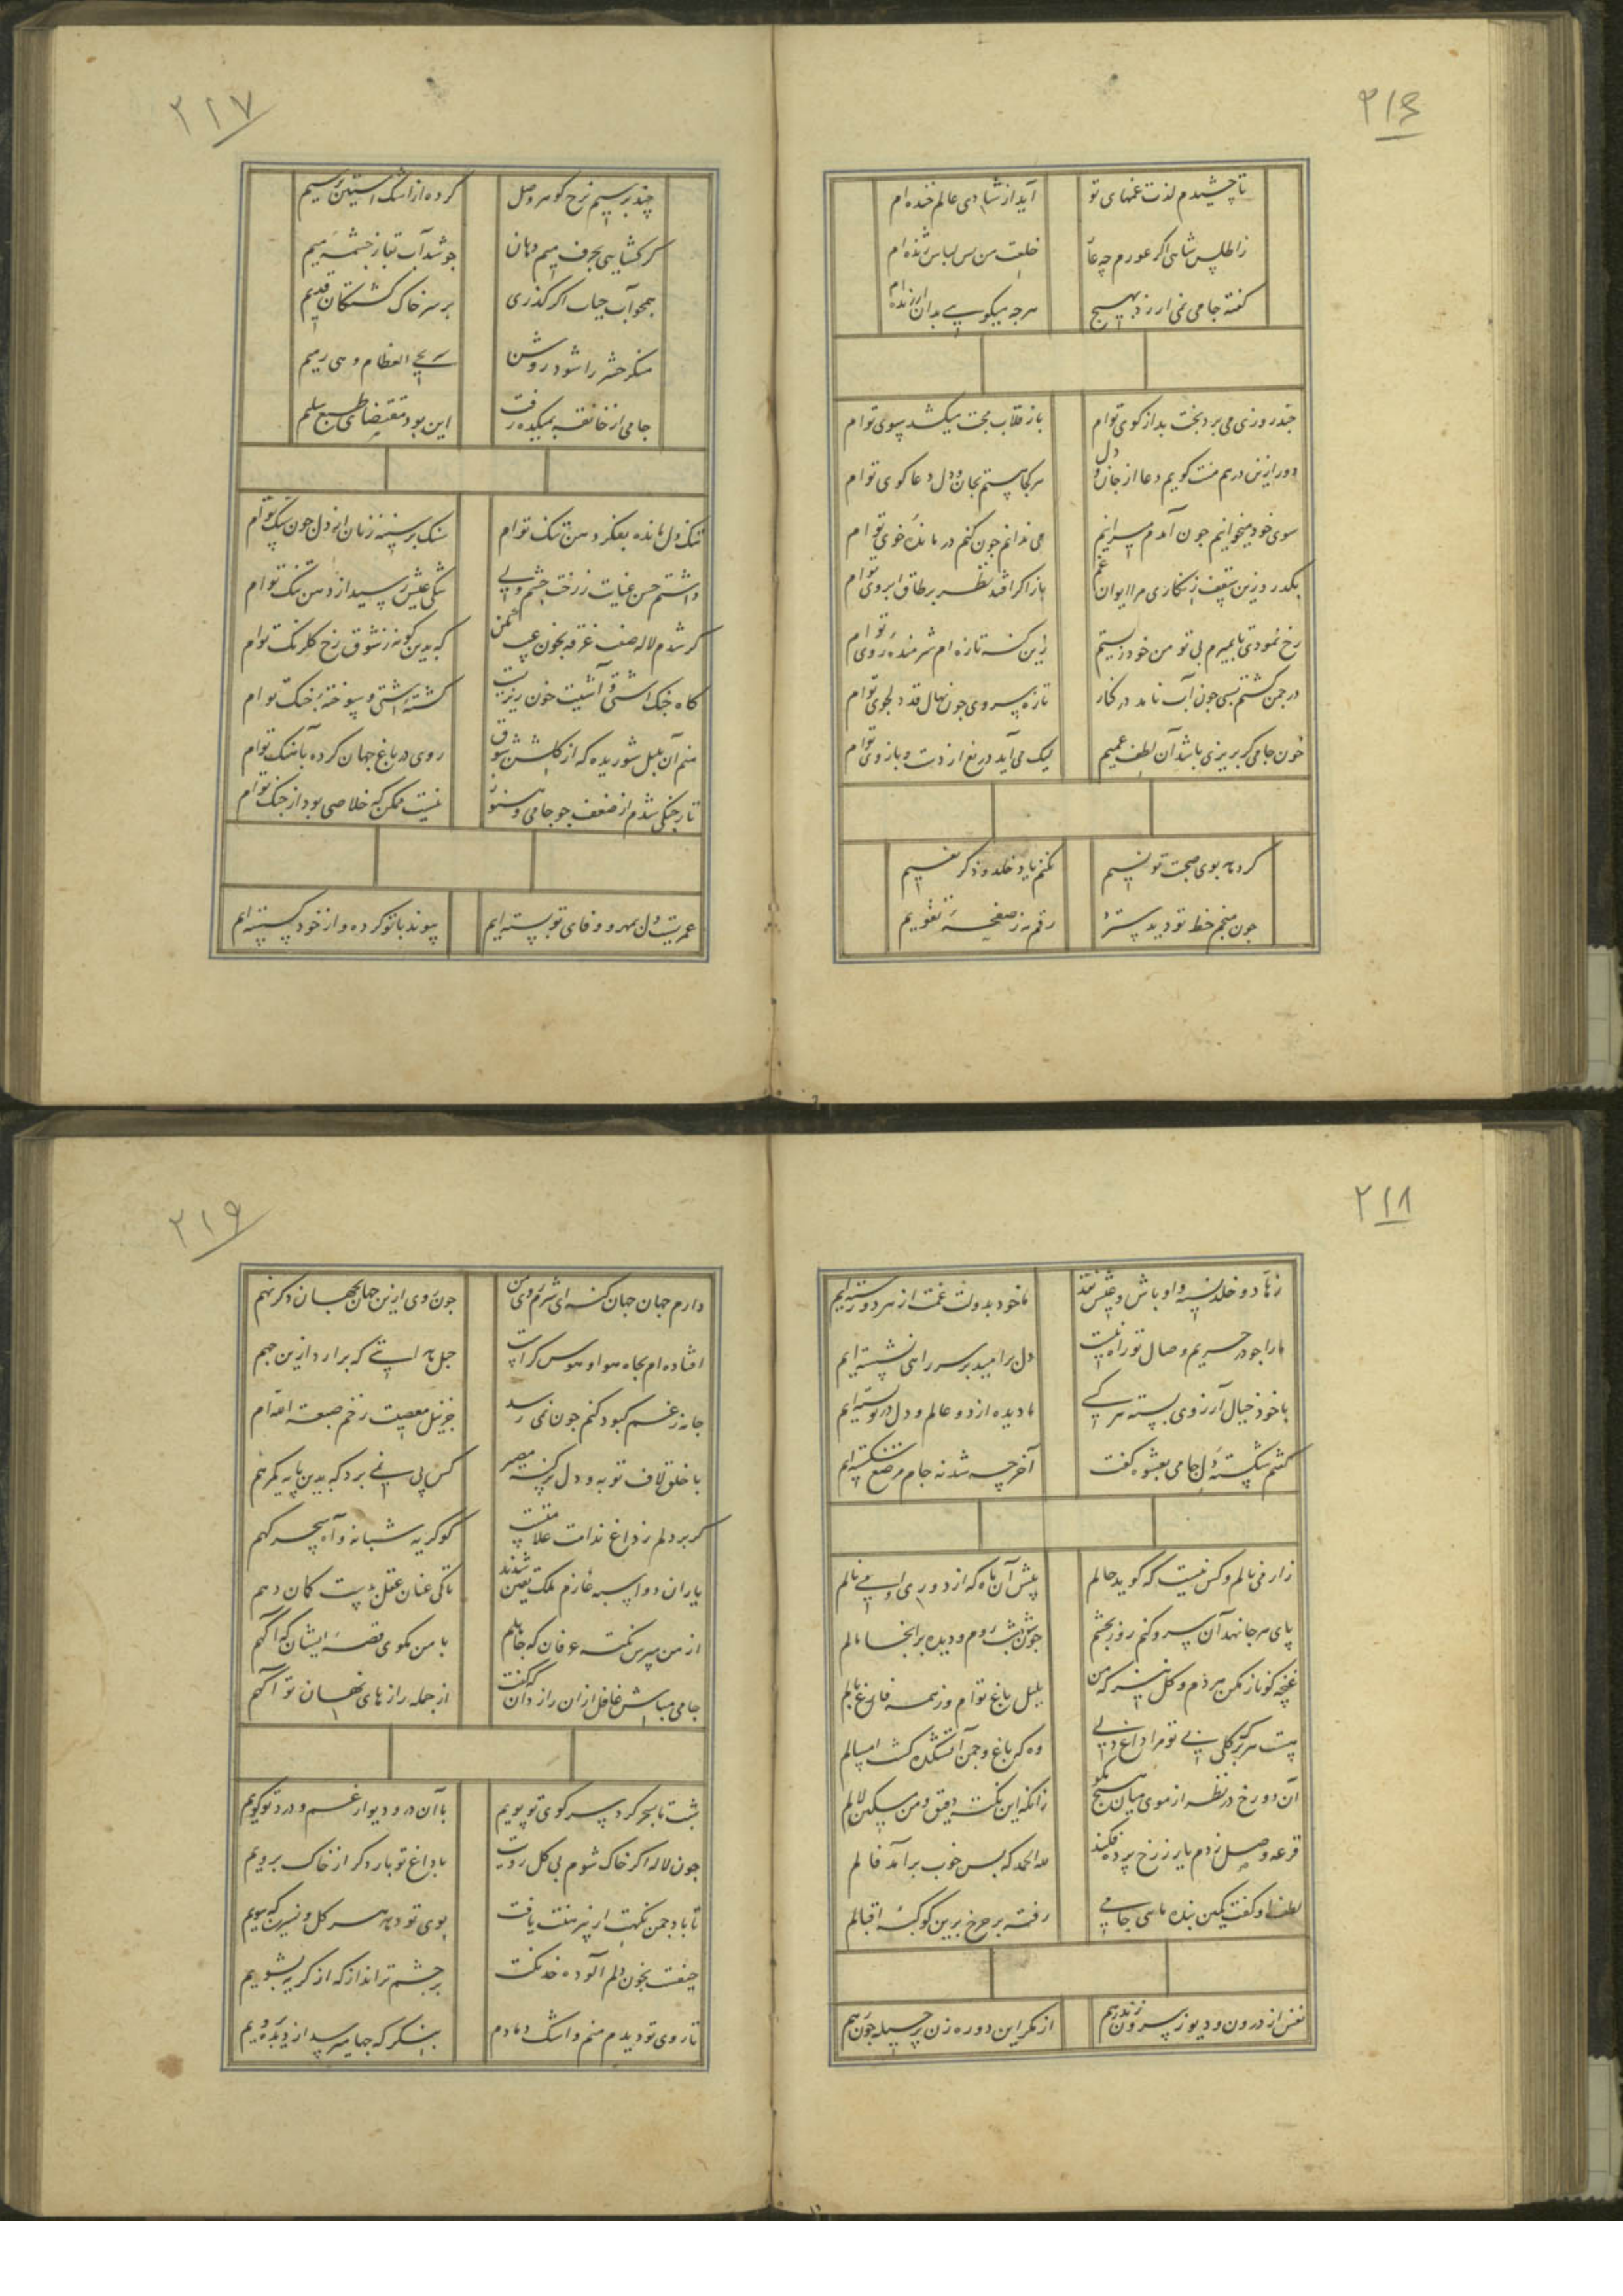 ۲۱۶
تا چشیدم لذت غمهای تو
آید از شادی عالم خنده ام
ز اطلس شاهی اگر عورم چه عار
خلعت من بس لباس ژنده ام
گفته جامی نمی ارزد بهیچ
هرچه میگویی بدان ارزنده ام
چند روزی می برد بخت بد از کوی توام
باز قلاب محبت میکشد سوی توام
دور ازین در هم منت گویم دعا از جان و دل
هر کجا هستم بجان و دل دعاگوی توام
سوی خود میخوانیم چون آمدم میرانیم
می ندانم چون کنم درمانده خوی توام
بگذرد زین سقف زنگاری مرا ایوان غم
باز اگر افتد نظر بر طاق ابروی توام
رخ نمودی تا بمیرم بی تو من خود زیستم
زین گنه تا زنده ام شرمنده روی توام
در چمن گشتم بسی چون آب نامد در کنار
تازه سروی چون نهال قد دلجوی توام
خون جامی گر بریزی باشد آن لطف عمیم
لیک می آید دریغ از دست و بازوی توام
کرده تا بوی صحبت تو نسیم
نکنم یاد خلد و ذکر نعیم
چون منجم خط تو دید سترد
رقم مه ز صفحه تقویم
۲۱۷
چند پرسیم نرخ گوهر وصل
کرده از اشک آستین پر سیم
گر گشایی بحرف میم دهان
جوشد آب بقا ز چشمه میم
همچو آب حیات اگر گذری
بر سر خاک کشتگان قدیم
منکر حشر را شود روشن
سر یحیی العظام و هی رمیم
جامی از خانقه بمیکده رفت
این بود مقتضای طبع سلیم
تنگ دل مانده بفکر دهن تنگ توام
سنگ بر سینه زنان از دل چون سنگ توام
داشتم حسن غنایت ز رخت چشم ولی
تنگی عیش رسید از دهن تنگ توام
گر شدم لاله صفت غرقه بخون عیب مکن
که بدین گونه ز شوق رخ گلرنگ توام
گاه جنگ آشتی و آشتیت خون ریزیست
کشته آشتی و سوخته جنگ توام
منم آن بلبل شوریده که از گلشن شوق
روی در باغ جهان کرده بآهنگ توام
تار چنگی شدم از ضعف چو جامی و هنوز
نیست ممکن که خلاصی بود از چنگ توام
عمریست دل بمهر و وفای تو بسته ایم
پیوند با تو کرده و از خود گسسته ایم
۲۱۸
زهاد و خلد نسیه و اوباش و عیش نقد
ما خود بدولت غمت از هر دو رسته ایم
ما را چو در حریم وصال تو راه نیست
دل بر امید بر سر راهی نشسته ایم
با خود خیال آرزوی بسته هر کسی
ما دیده از دو عالم و دل در تو بسته ایم
گفتم شکسته دل جامی بعشوه گفت
آخر چه شد نه جام مرصع شکسته ایم
زار می نالم و کس نیست که گوید حالم
پیش آن ماه که از دوری او می نالم
پای هر جا نهد آن سرو کنم روز بچشم
چون شب شد روم و دیده بر آنجا مالم
غنچه گو ناز مکن هر دم و گل نیز که من
بلبل باغ توام وز همه فارغ بالم
هست هر برگ گلی بی تو مرا داغ دلی
وه که باغ و چمن آتشکده گشت امسالم
آن دو رخ در نظر از موی میان هیچ مگو
زانکه این نکته دقیق و من مسکین لالم
قرعه وصل زدم یار ز رخ پرده فکند
لله الحمد که بس خوب برآمد فالم
لطف او گفت کمین بنده مایی جامی
رفت بر چرخ برین کوکبه اقبالم
نفس از درون و دیو ز بیرون زند رهم
از مکر این دو رهزن پر حیله چون رهم
۲۱۹
دارم جهان جهان گنه ای شرم روی من
چون روی ازین جهان بجهان دگر نهم
افتاده ام بچاه هوا و هوس کراست
حبل متانتی که برآرد ازین چهم
جامه ز غم کبود کنم چون نمی رسد
جز نیل معصیت ز خم صبغة اللهم
با خلق لاف توبه و دل بر گنه مصر
کس پی نمی برد که بدین پایه گمرهم
گر بر دلم ز داغ ندامت علامتست
کو گریه شبانه و آه سحرگهم
یاران دو اسبه عازم ملک یقین شدند
تا کی عنان عقل بدست گمان دهم
از من مپرس نکته عرفان که جاهلم
با من مگوی قصه ایشان که آگهم
جامی مباش غافل ازان رازدان که گفت
از جمله رازهای نهان تو آگهم
شب تا سحر گرد سر کوی تو پویم
با آن در و دیوار غم و درد تو گویم
چون لاله اگر خاک شوم بی گل رویت
با داغ تو بار دگر از خاک برویم
تا باد چمن نکهت پیرهنت یافت
بوی تو دهد هر گل و نسرین که ببویم
حیفست بخون دلم آلوده خدنگت
بر چشم تر انداز که از گریه بشویم
تا روی تو دیدم منم و اشک دمادم
بنگر که چها میرسد از دیده برویم